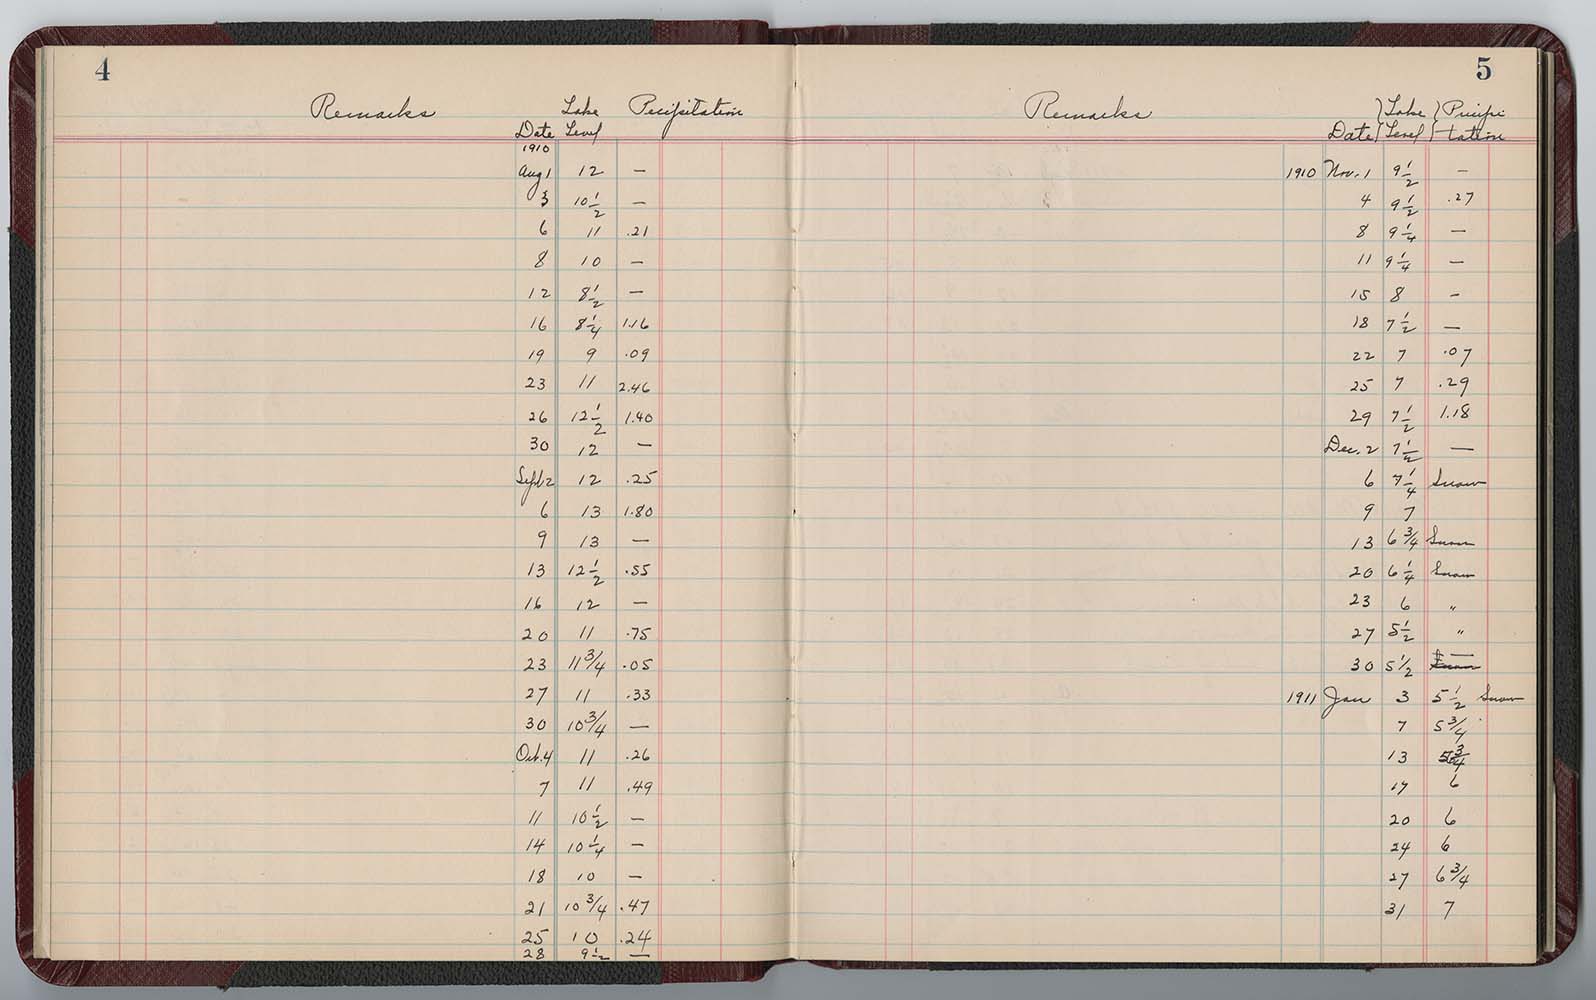 4
Remarks Date Lake Level Precipitation
1910
Aug 1 12 —
3 10 1/2 —
6 11 .21
8 10 —
12 8 1/2 —
16 8 1/4 1.16
19 9 .09
23 11 2.46
26 12 1/2 1.40
30 12 —
Sept 2 12 .25
6 13 1.80
9 13 —
13 12 1/2 .55
16 12 —
20 11 .75
23 11 3/4 .05
27 11 .33
30 10 3/4 —
Oct. 4 11 .26
7 11 .49
11 10 1/2 —
14 10 1/4 —
18 10 —
21 10 3/4 .47
25 10 .24
28 9 1/2 —
5
Remarks Date Lake Level Precipitation
1910 Nov. 1 9 1/2 —
4 9 1/2 .27
8 9 1/4 —
11 9 1/4 —
15 8 —
18 7 1/2 —
22 7 .07
25 7 .29
29 7 1/2 1.18
Dec. 2 7 1/2 —
6 7 1/4 Snow
9 7
13 6 3/4 Snow
20 6 1/4 Snow
23 6 "
27 5 1/2 "
30 5 1/2 Snow —
1911 Jan 3 5 1/2 Snow
7 5 3/4
13 5 3/4
17 6
20 6
24 6
27 6 3/4
31 7